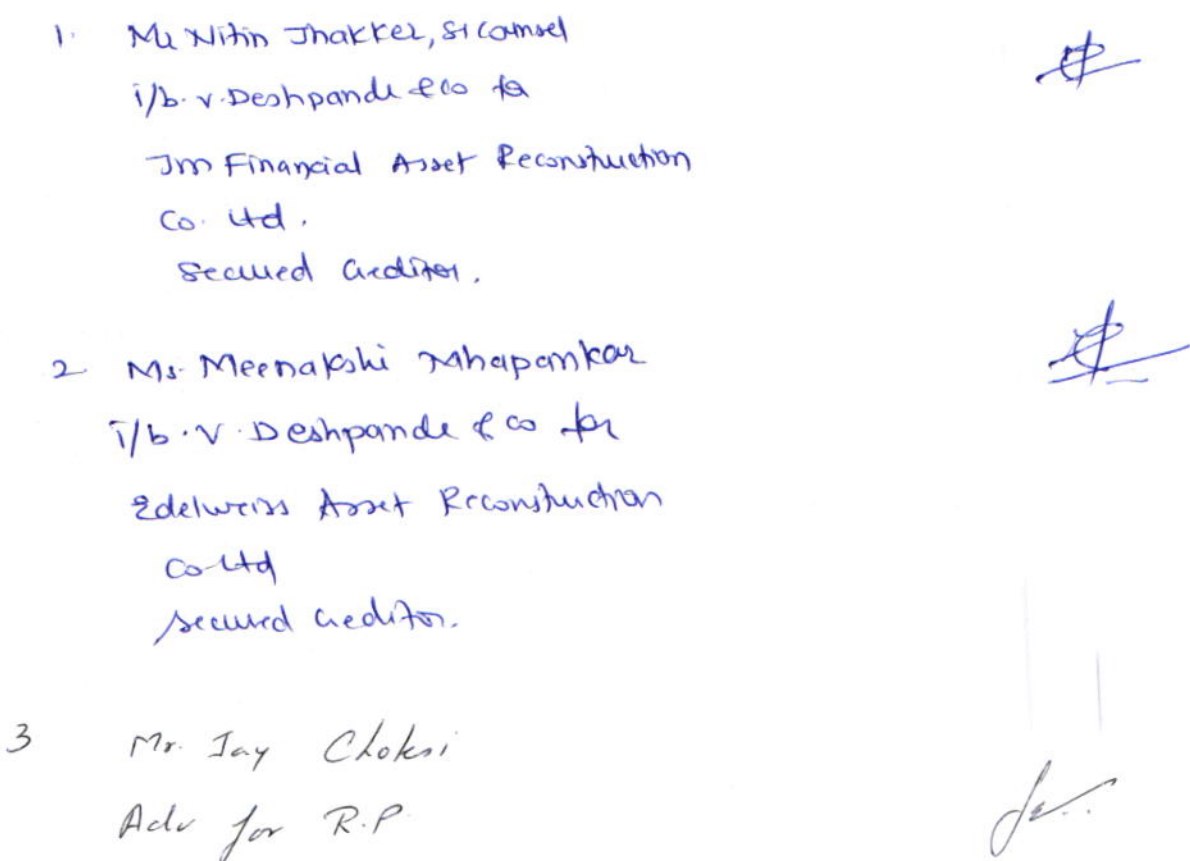 1. Mr Nitin Thakker, Sr counsel
i/b. V. Deshpande & co for
Jm Financial Asset Reconstruction
Co. Ltd.
Secured Creditor.
2 Ms. Meenakshi Mhapankar
i/b. V. Deshpande & co for
Edelweiss Asset Reconstruction
Co Ltd
Secured Creditor.
3 Mr. Jay Choksi
Adv for R.P.